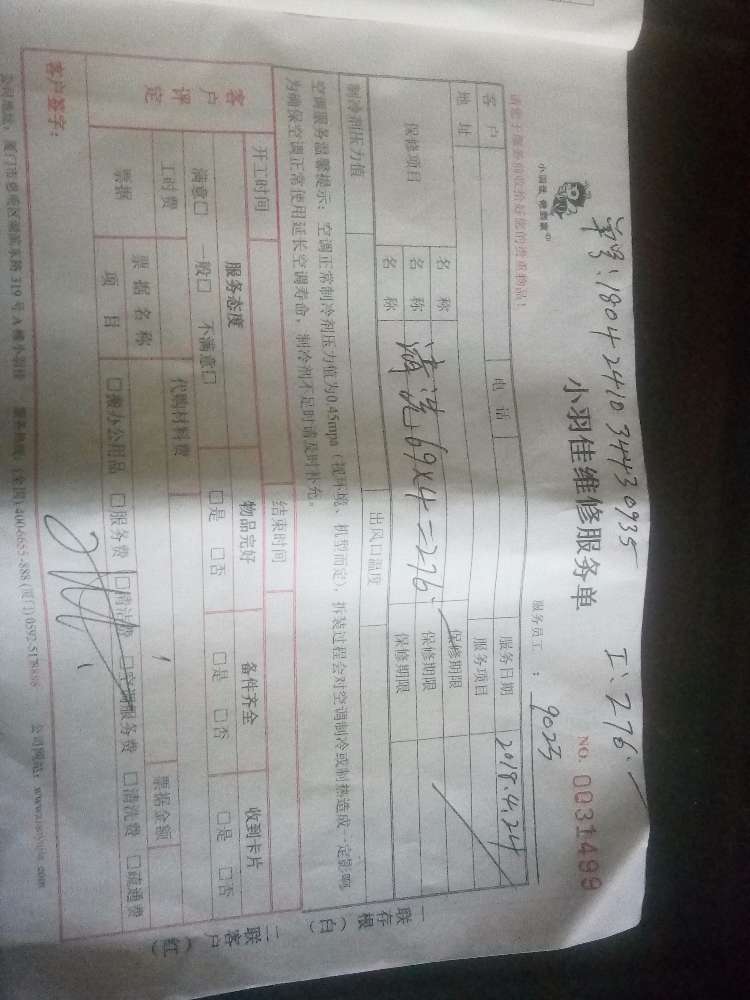 单号：1804241034430935 工：276.
小羽佳 像跑家
小羽佳维修服务单
NO. 0031499
请您于服务前收拾好您的贵重物品！
服务员工： 9023
客户 电话 服务日期 2018.4.24
地址 服务项目
保修项目 名称 保修期限
名称 清洗69×4=276 保修期限
名称 保修期限
制冷剂压力值 出风口温度
空调服务温馨提示：空调正常制冷剂压力值为0.45mpa（视环境、机型而定），拆装过程会对空调制冷或制热造成一定影响
为确保空调正常使用延长空调寿命，制冷剂不足时请及时补充。
开工时间 结束时间
客户评定 服务态度 物品完好 备件齐全 收到卡片
满意□ 一般□ 不满意□ □是 □否 □是 □否 □是 □否
工时费 代购材料费
票据 票据名称 票据金额
项目 □办公用品 □服务费 □清洁费 □空调服务费 □清洗费 □疏通费
客户签字：
319号A栋小羽佳 服务热线：(全国)400-6655-888 (厦门)0592-5178888 公司网站：
一联存根（白）
二联客户（红）